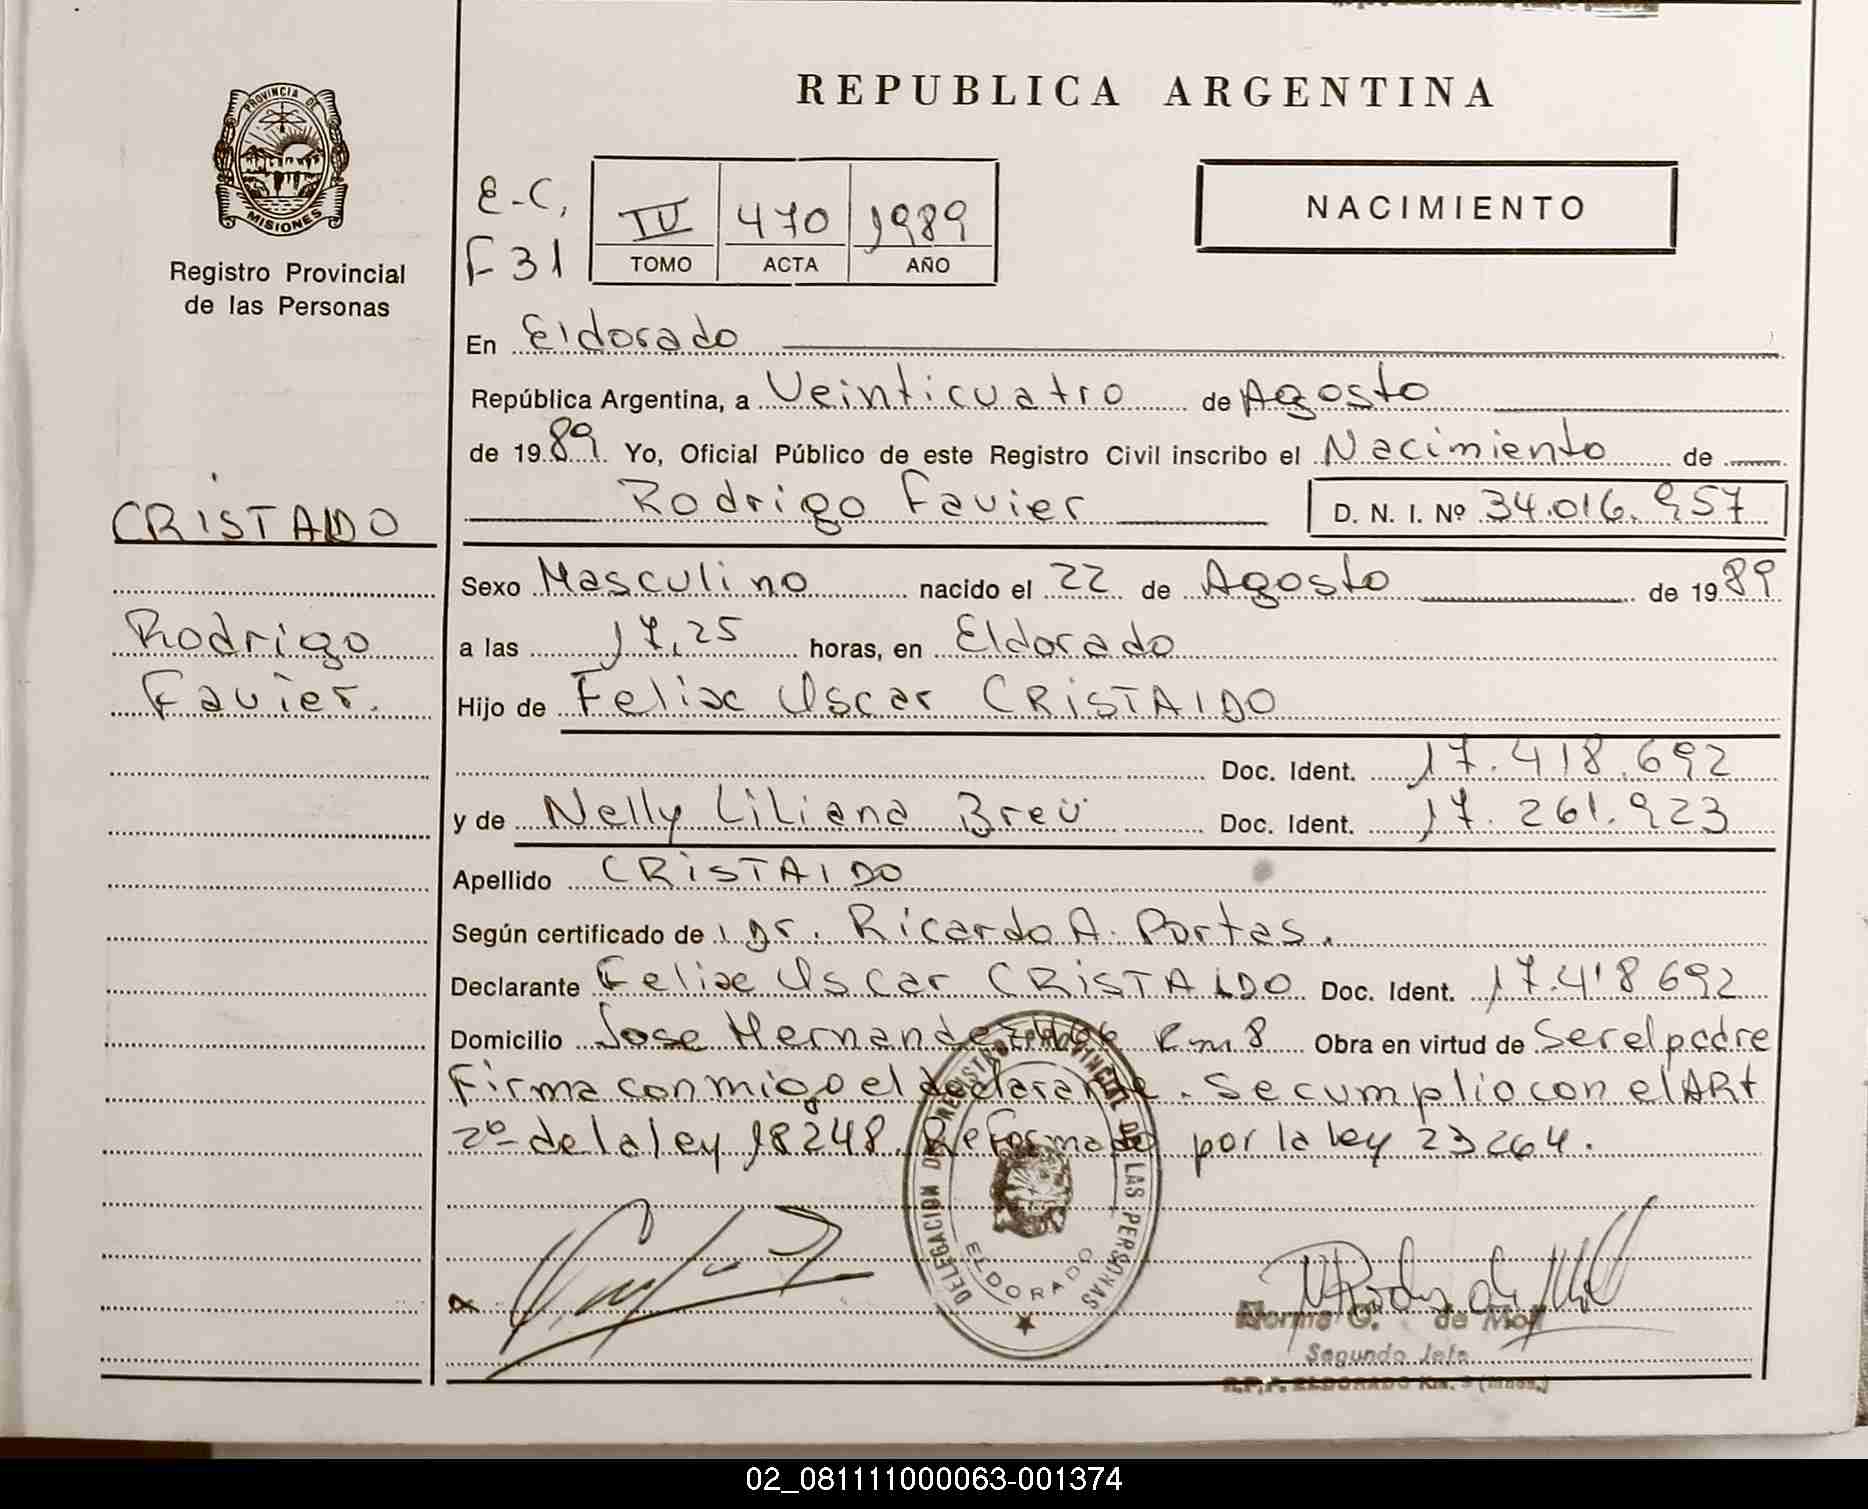 REPUBLICA ARGENTINA
PROVINCIA DE
MISIONES
Registro Provincial
de las Personas
E-C,
F 31
IV 470 1989
TOMO ACTA AÑO
NACIMIENTO
En Eldorado
República Argentina, a Veinticuatro de Agosto
de 1989. Yo, Oficial Público de este Registro Civil inscribo el Nacimiento de
Rodrigo Favier D. N. I. Nº 34.016.957
CRISTALDO
Rodrigo
Favier.
Sexo Masculino nacido el 22 de Agosto de 1989
a las 17,25 horas, en Eldorado
Hijo de Felix Oscar CRISTALDO
Doc. Ident. 17.418.692
y de Nelly Liliana Breu Doc. Ident. 17.261.923
Apellido CRISTALDO
Según certificado de Dr. Ricardo A. Portas.
Declarante Felix Oscar CRISTALDO Doc. Ident. 17.418692
Domicilio Jose Hernandez Km 8 Obra en virtud de Ser el padre
Firma conmigo el declarante. Se cumplio con el ARt
2º de la ley 18248. Reformado por la ley 23264.
DELEGACION DEL REGISTRO PROVINCIAL DE LAS PERSONAS
ELDORADO
Norma G. de Moll
Segundo Jefe
R.P.P. ELDORADO KM. 9 (Mnes.)
02_081111000063-001374